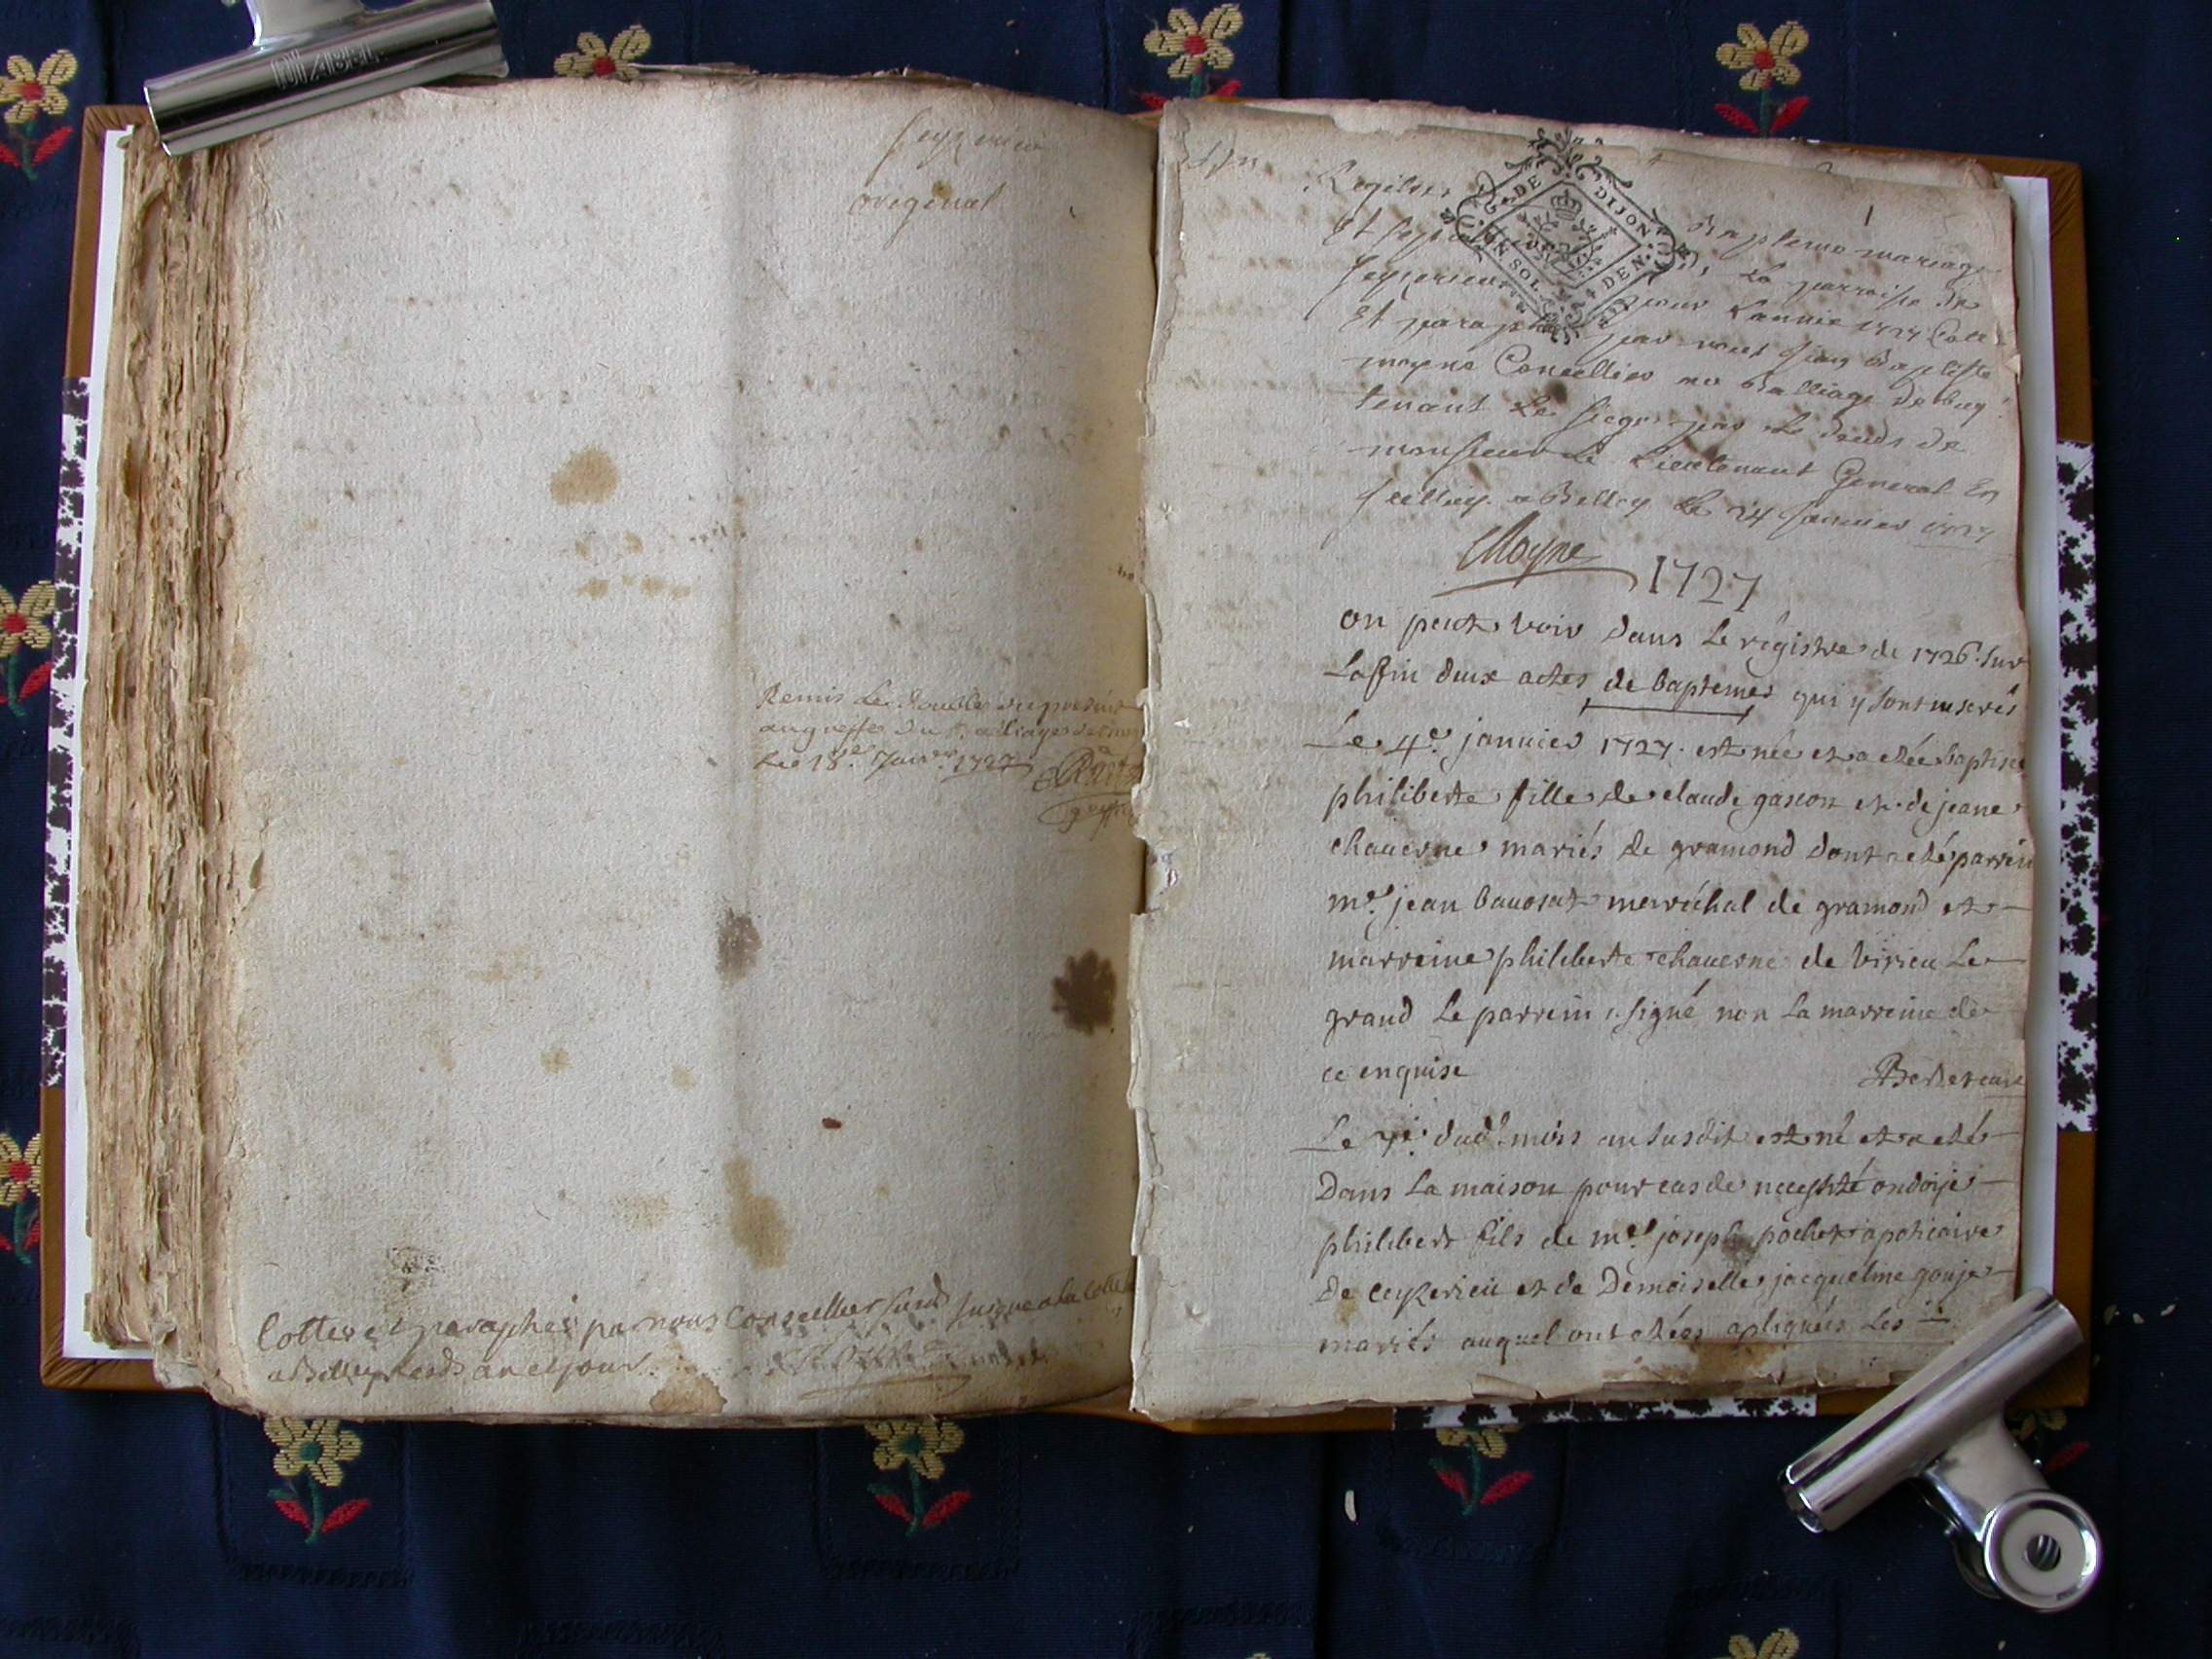 DIABEL
ceyzerieu
original
Remis Le double du present
au greffe du Balliage
Le 18e. Janvr. 1727
Cottes et paraphes par nous Conseiller susd. jusque a la
a Belley lesd. an et jour
DE DIJON
UN SOL DEN.
1
Registre Bapteme mariage
Et sepulture La parroisse de
Seyzerieu pour Lannée 1727 Cotte
Et paraphé par nous Jean Baptiste
moyne Conseillier au Balliage de bugey
tenant Le siege par Le deceds de
monsieur Le Lieutenant General En
a Belley Le 24 Janvier 1727
Moyne
1727
on peut voir dans Le régistre de 1726. sur
La fin deux actes de baptemes qui y sont inserés
Le 4e. janvier 1727. est née et a etée baptisée
philiberte fille de claude gascon et de jeane
chaverne mariés de gramond dont a eté parrein
me. jean bavosat maréchal de gramond et
marreine philiberte chaverne de virieu Le
grand Le parrein signé non La marreine de
ce enquise
Le 7e. dud. mois an susdit est né et a eté
Dans La maison pour cas de necessité ondoijé
philibert fils de me. joseph pochet apoticaire
de ceyzerieu et de Demoiselle jacqueline gouje
mariés auquel ont etées apliqués Les